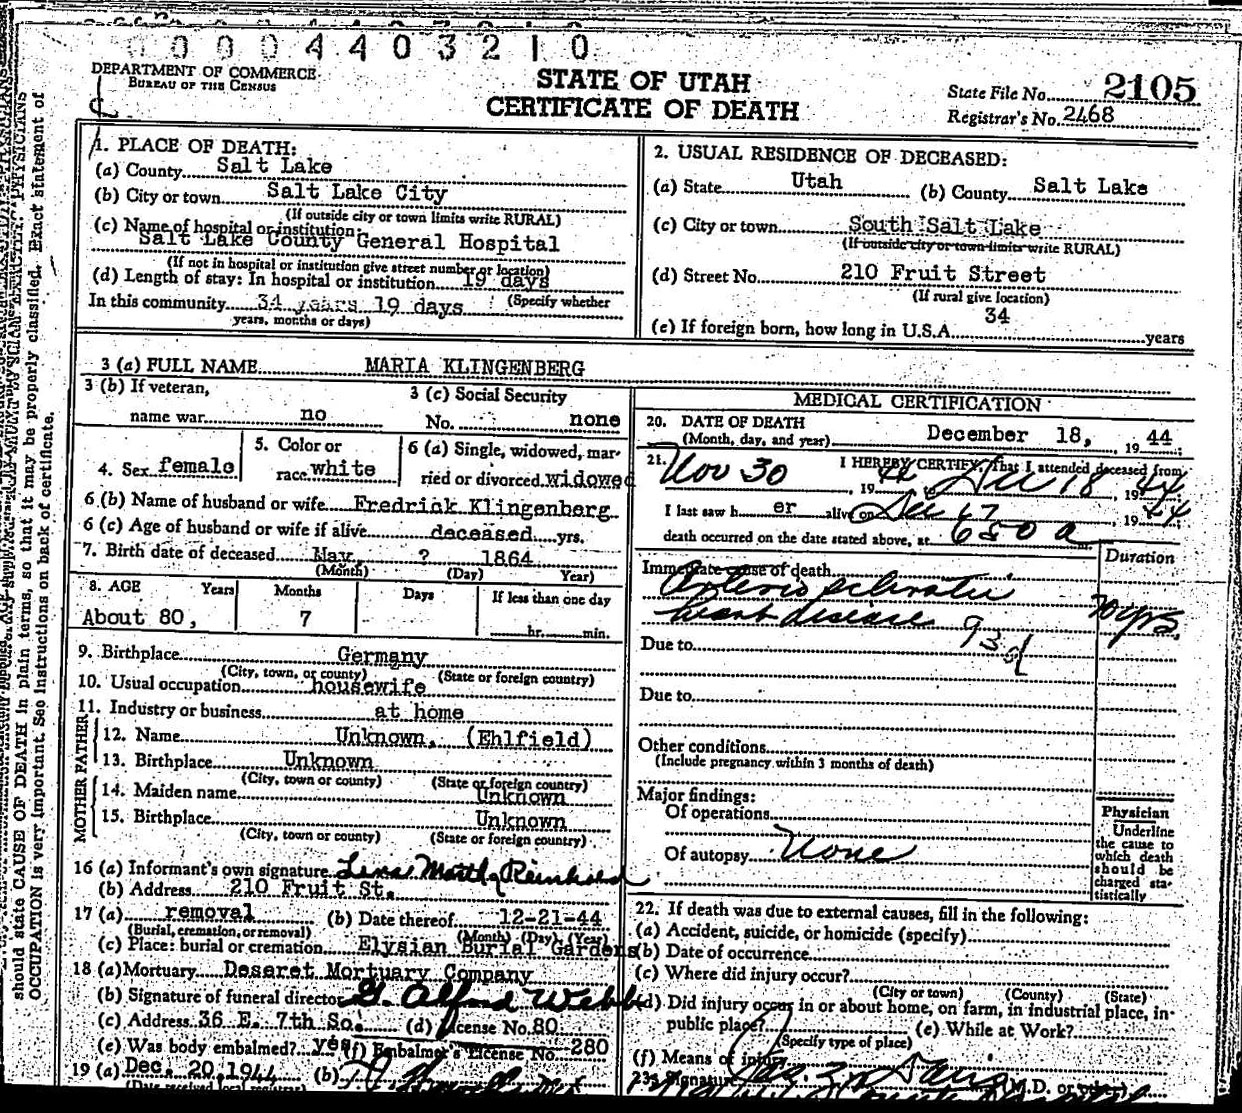 0 0 0 0 4 4 0 3 2 1 0
DEPARTMENT OF COMMERCE
BUREAU OF THE CENSUS
STATE OF UTAH
CERTIFICATE OF DEATH
State File No. 2105
Registrar's No. 2468
should state CAUSE OF DEATH in plain terms, so that it may be properly classified. Exact statement of
OCCUPATION is very important. See instructions on back of certificate.
1. PLACE OF DEATH:
(a) County Salt Lake
(b) City or town Salt Lake City
(If outside city or town limits write RURAL)
(c) Name of hospital or institution:
Salt Lake County General Hospital
(If not in hospital or institution give street number or location)
(d) Length of stay: In hospital or institution 19 days
In this community 34 years 19 days (Specify whether
years, months or days)
2. USUAL RESIDENCE OF DECEASED:
(a) State Utah (b) County Salt Lake
(c) City or town South Salt Lake
(If outside city or town limits write RURAL)
(d) Street No. 210 Fruit Street
(If rural give location)
(e) If foreign born, how long in U.S.A. 34 years
3 (a) FULL NAME MARIA KLINGENBERG
3 (b) If veteran,
name war no
3 (c) Social Security
No. none
4. Sex female
5. Color or
race white
6 (a) Single, widowed, mar-
ried or divorced widowed
6 (b) Name of husband or wife Fredrick Klingenberg
6 (c) Age of husband or wife if alive deceased yrs.
7. Birth date of deceased May ? 1864
(Month) (Day) Year)
8. AGE Years Months Days If less than one day
About 80, 7 hr. min.
9. Birthplace Germany
(City, town, or county) (State or foreign country)
10. Usual occupation housewife
11. Industry or business at home
FATHER
12. Name Unknown, (Ehlfield)
13. Birthplace Unknown
(City, town or county) (State or foreign country)
MOTHER
14. Maiden name Unknown
15. Birthplace Unknown
(City, town or county) (State or foreign country)
16 (a) Informant's own signature Lena Martha Reinhold
(b) Address 210 Fruit St.
17 (a) removal (b) Date thereof 12-21-44
(Burial, cremation, or removal) (Month) (Day) (Year)
(c) Place: burial or cremation Elysian Burial Gardens
18 (a) Mortuary Deseret Mortuary Company
(b) Signature of funeral director G. Alford Webb
(c) Address 36 E. 7th So. (d) License No. 80
(e) Was body embalmed? yes (f) Embalmer's License No. 280
19 (a) Dec. 20, 1944 (b)
MEDICAL CERTIFICATION
20. DATE OF DEATH
(Month, day, and year) December 18, 1944
21. I HEREBY CERTIFY, That I attended deceased from
Nov 30, 1944 to Dec 18, 1944
I last saw her alive on Dec 17, 1944
death occurred on the date stated above, at 650 a m.
Duration
Immediate cause of death
Arterio sclerotic
heart disease 93d
Due to
Due to
Other conditions
(Include pregnancy within 3 months of death)
Major findings:
Of operations
Of autopsy None
Physician
Underline
the cause to
which death
should be
charged sta-
tistically
22. If death was due to external causes, fill in the following:
(a) Accident, suicide, or homicide (specify)
(b) Date of occurrence
(c) Where did injury occur?
(City or town) (County) (State)
(d) Did injury occur in or about home, on farm, in industrial place, in
public place? (e) While at Work?
(Specify type of place)
(f) Means of injury
23. Signature (M.D. or other)